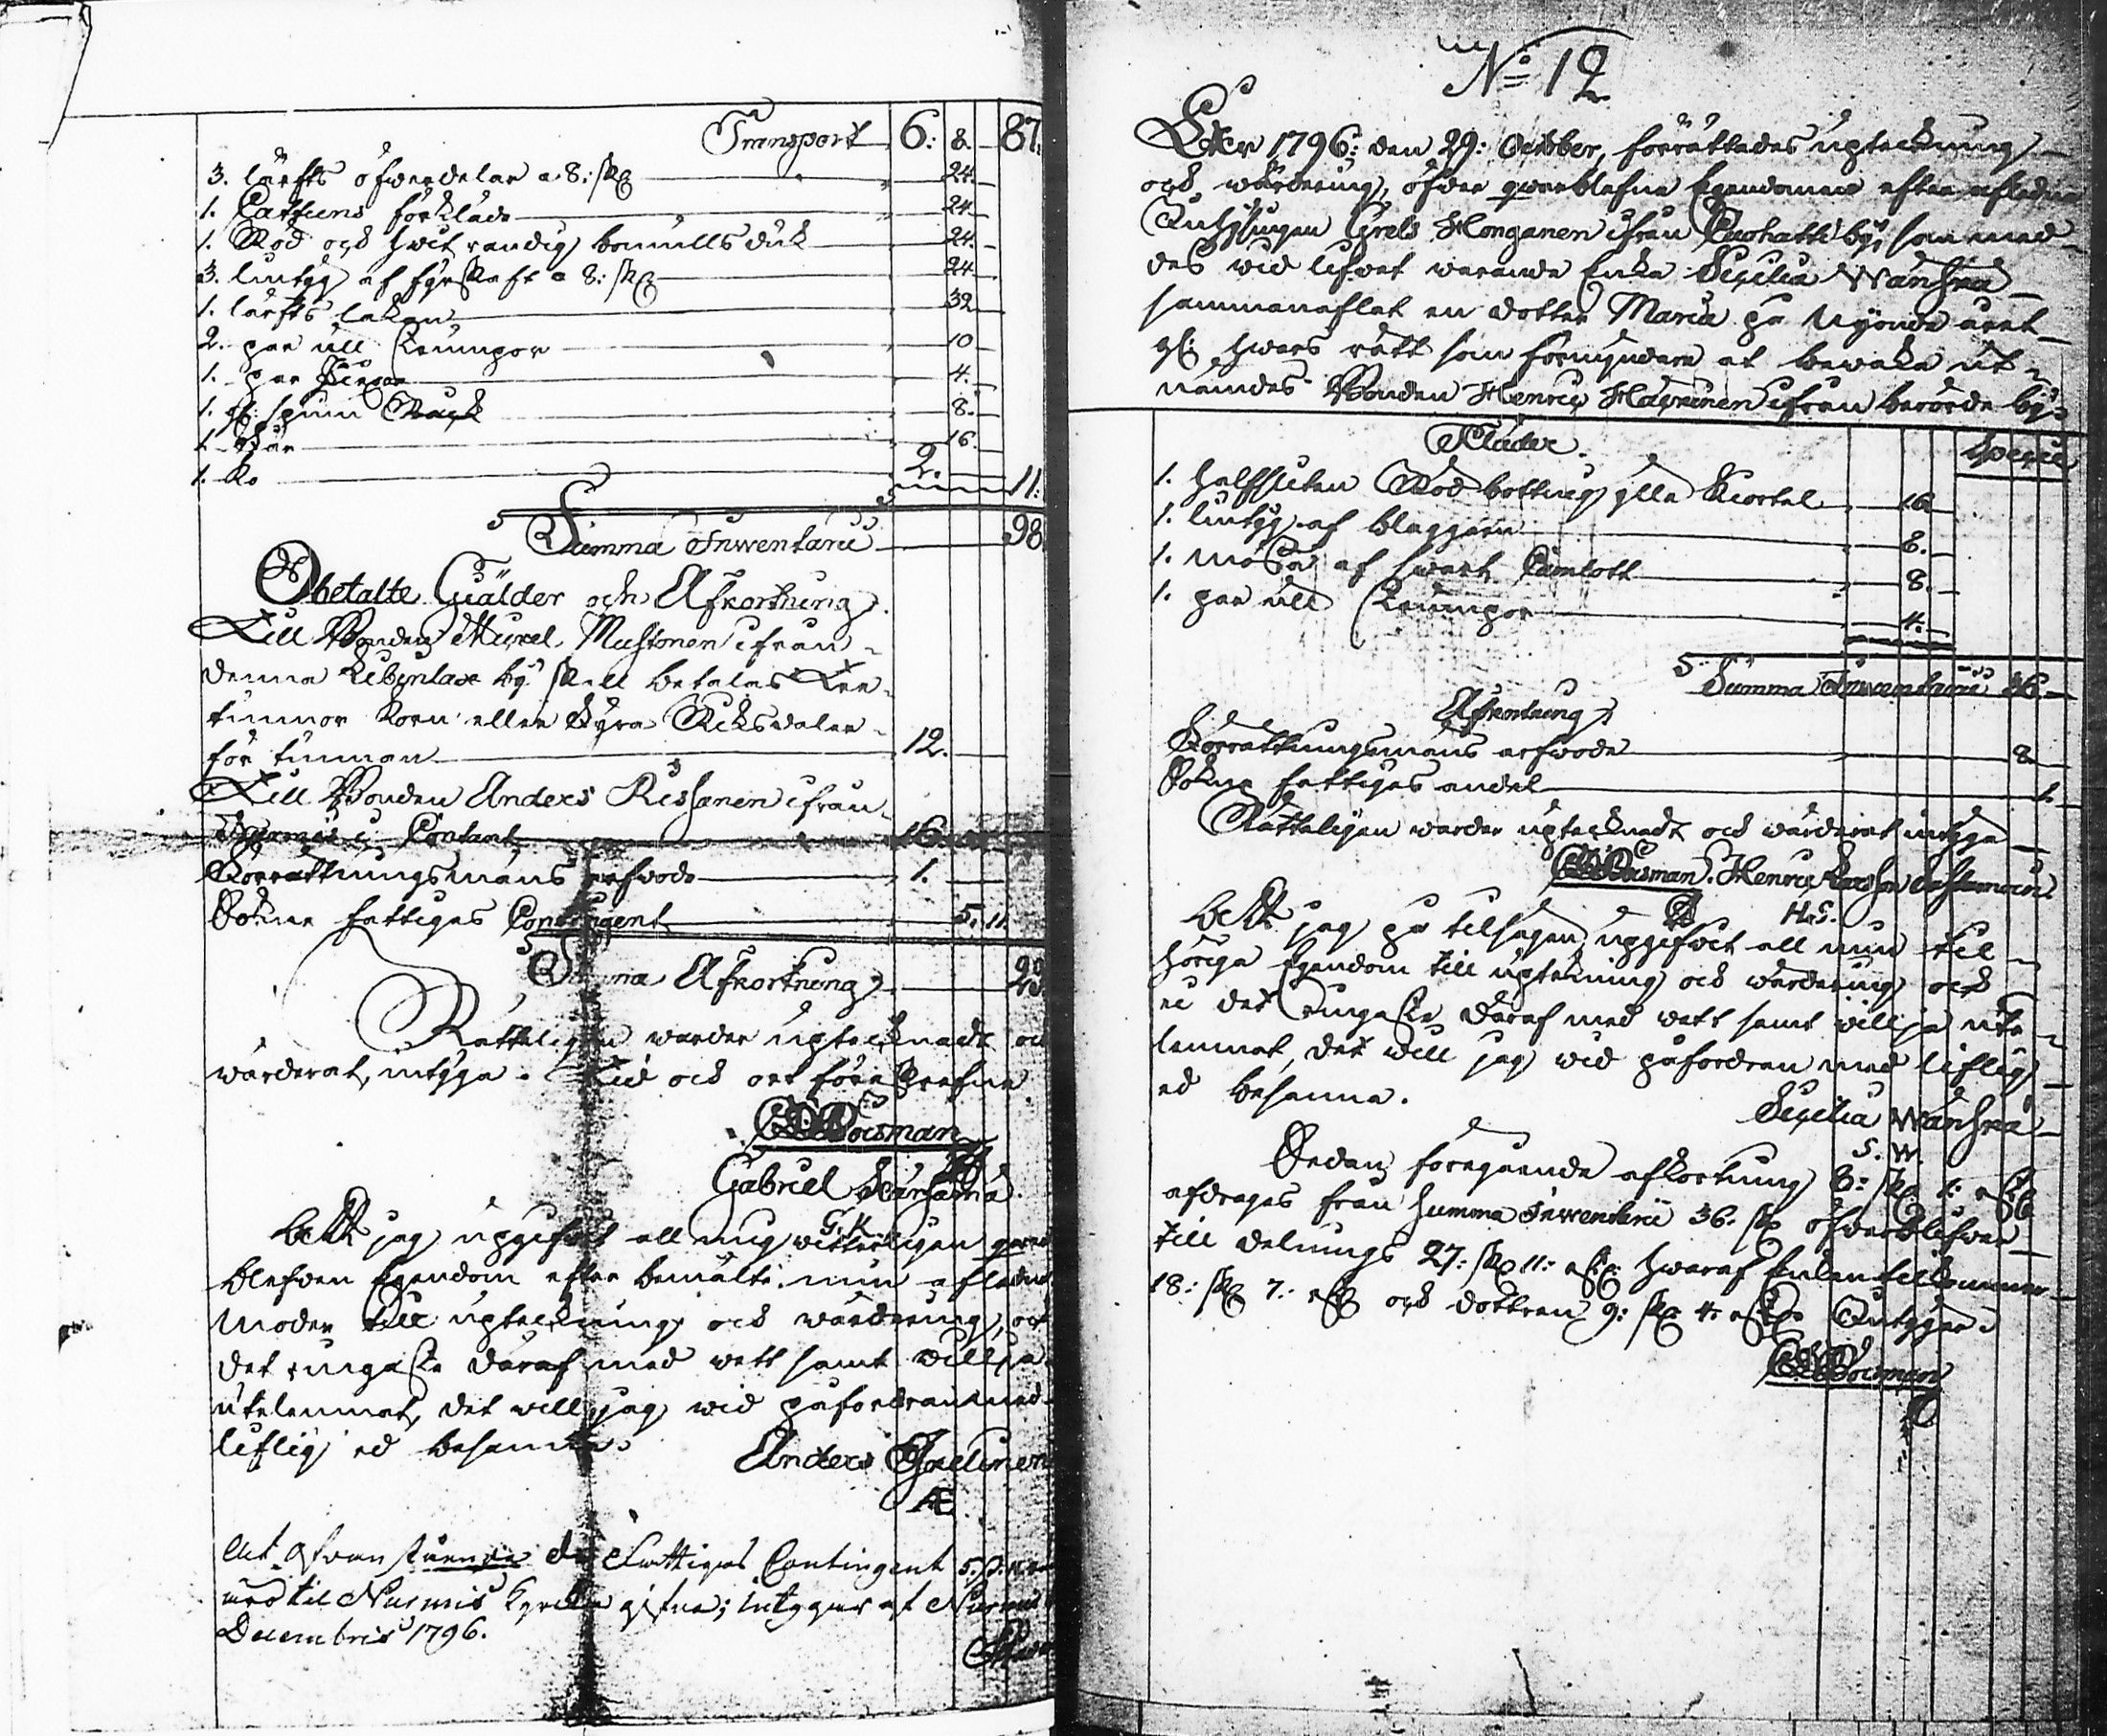 Transport 6: 8. 87.
3. lärfts öfwerdelar a 8: sk 24.
1. Cattuns förkläde 24
1. Röd och hwit randig bomulls duk 24.
3. lintyg af fyrskaft a 8: sk 24
1. lärfts lakan 32
2. par ull Strumpor 10
1. par 4.
1. spun 8.
1. 16.
1. Ko 2. 11:
Summa Inventarii 98.
Obetalte Gälder och Afkortning.
Till Bonden Mustonen ifrån
denna by skall betalas Tre
tunnor Korn eller fyra Riksdaler
för tunnan 12.
Till Bonden Anders Rissanen ifrån
Nurmis i Contant 16.
Förrättningsmans arfwode 1.
Sokne fattigas Contingent 5. 11.
Summa Afkortning
Rätteligen warder uptecknadt och
wärderat, intyga. Tid och ort föreskrefne
Gabriel
G. K.
har jag upgifwit all mig witterligen qwar
blefwen Egendom efter bemälte min afledne
Moder till upteckning och wärdering, och
det ringaste däraf med wett samt willja
utelemnat, det will jag wid påfordran med
liflig ed besanna.
Anders
At ofwan stående de Fattigas Contingent 5.
till Nurmis Kyrcka gifne; intygar af Nurmis
Decembris 1796.
No 12
Åhr 1796: den 29: October, förrättades upteckning
och wärdering, öfwer qwarblefne Egendomen efter afledne
Inhysingen Grels Honganen ifrån Puohatti by, som med
des wid lifwet warande Enka Cecilia Wänskä
sammanaflat en dotter Maria på Nijonde året
gl: hwars rätt som förmyndare at bewaka ut
nämdes Bonden Henric ifrån berörde by
Kläder.
1. halfsliten Röd botting ylle Kiortel 16
1. lintyg af blaggarn 8.
1. mössa af swart Camlott 8.
1. par ull Strumpor 4.
Summa Inventarii 36.
Afkortning
Förrättningsmans arfwode 8.
Sokne fattigas andel 1.
Rätteligen warder uptecknadt och wärderat intyga
Henric
H. S.
har jag på tilsägen upgifwit all min til
höriga Egendom till upteckning och wärdering och
ei det ringaste däraf med wett samt willja ute
lemnat, det will jag wid påfordran med liflig
ed besanna.
Cecilia Wänskä
S. W.
Sedan föregående afkortning 8: sk 1: rst
afdrages från Summa Inventarii 36. sk öfwerblifwer
till delnings 27: sk 11: rst hwaraf Enkan tillkommer
18: sk 7. rst och dottren 9: sk 4: rst Intygar.